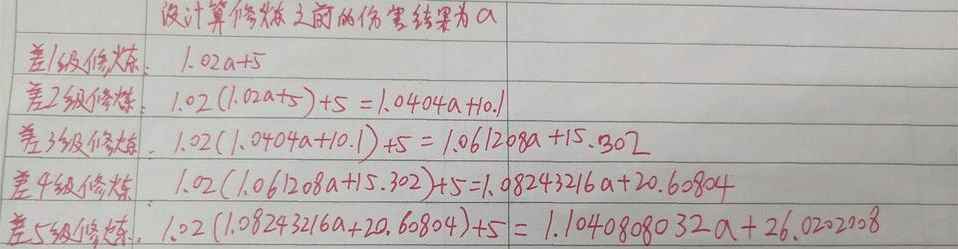 设计算修炼之前的伤害结果为a
差1级修炼: 1.02a+5
差2级修炼: 1.02(1.02a+5)+5=1.0404a+10.1
差3级修炼: 1.02(1.0404a+10.1)+5=1.061208a+15.302
差4级修炼: 1.02(1.061208a+15.302)+5=1.08243216a+20.60804
差5级修炼: 1.02(1.08243216a+20.60804)+5=1.1040808032a+26.0202008